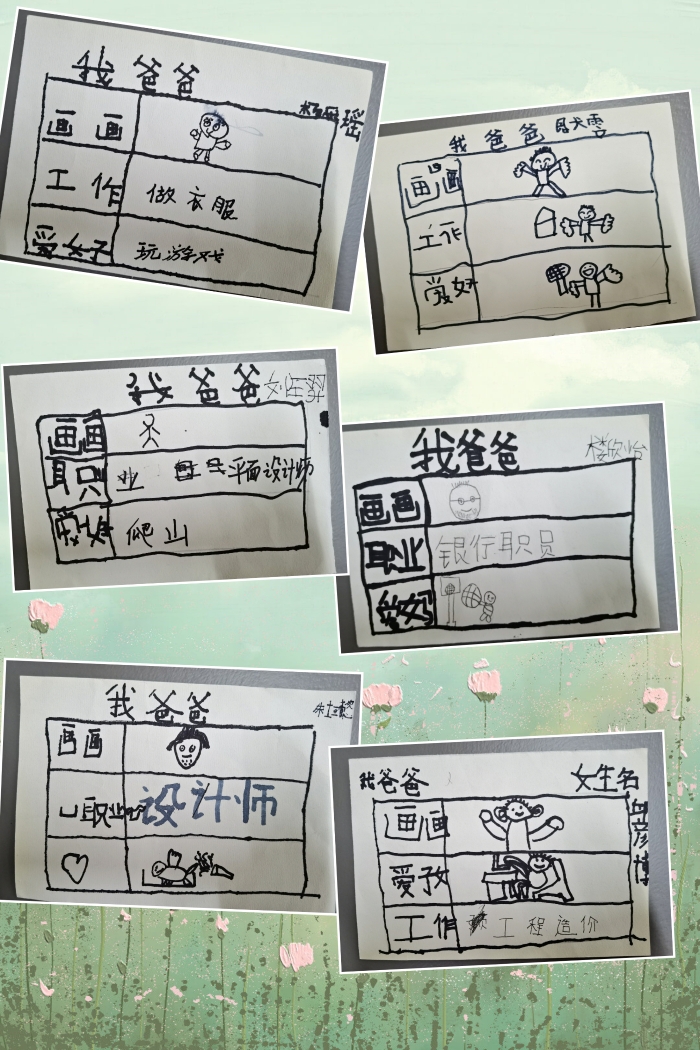 我爸爸
瑶
画画
工作 做衣服
爱好 玩游戏
我爸爸
画画
工作
爱好
我爸爸
画画
职业 平面设计师
爱好 爬山
我爸爸 楼欣怡
画画
职业 银行职员
爱好
我爸爸
画画
职业 设计师
我爸爸 女生名
画画
爱好
工作 工程造价